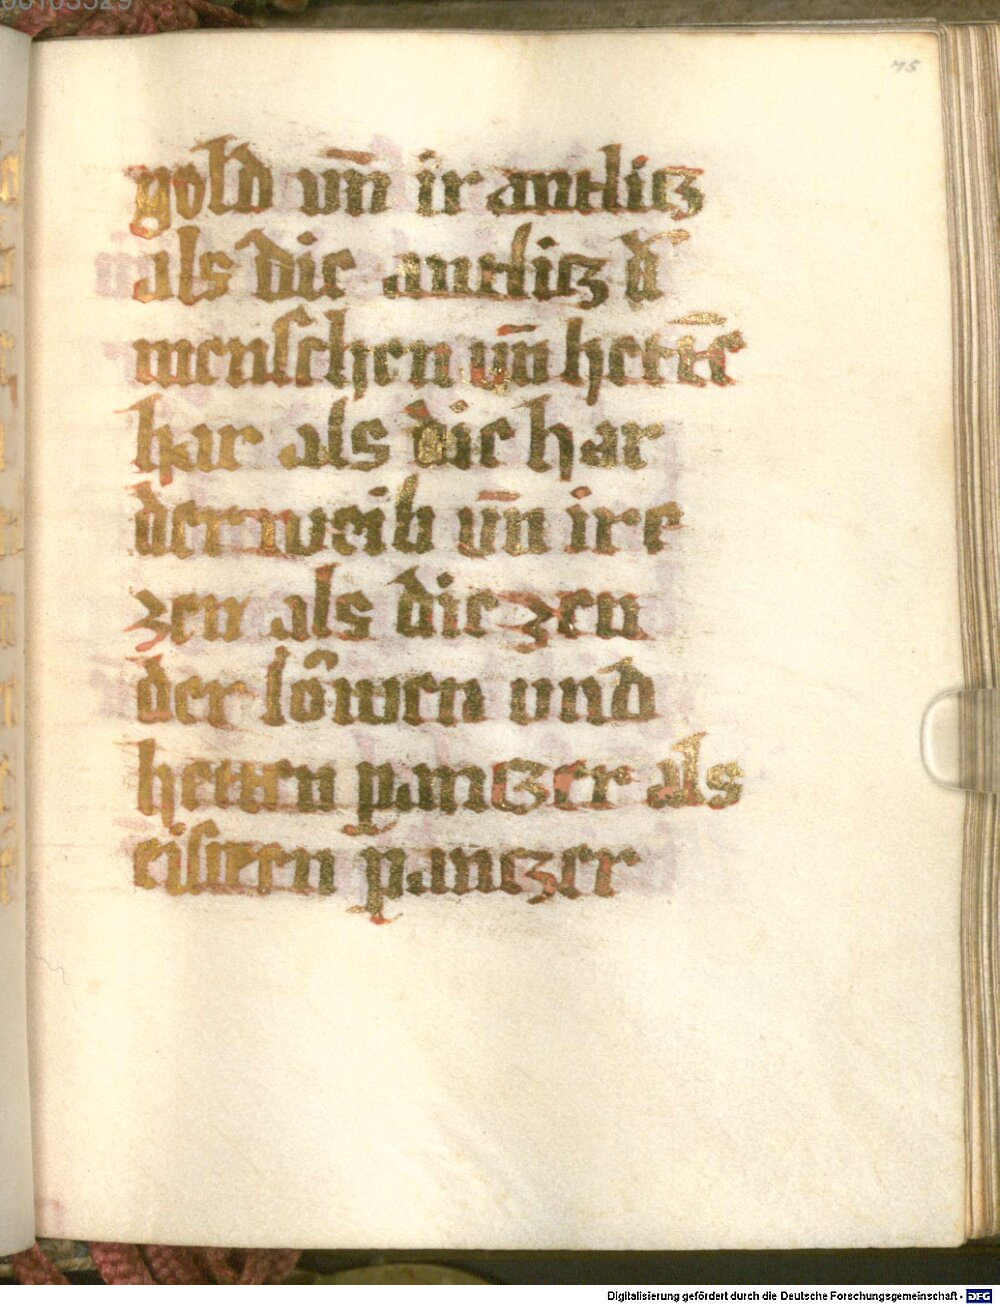 75
gold vn̄ ir antlicz
als die antlicz d̕
menschen vn̄ hettē
har als die har
der weib vn̄ ire
zen als die zen
der lo̊wen und
hetten panczer als
eisnen panczer
Digitalisierung gefördert durch die Deutsche Forschungsgemeinschaft - DFG